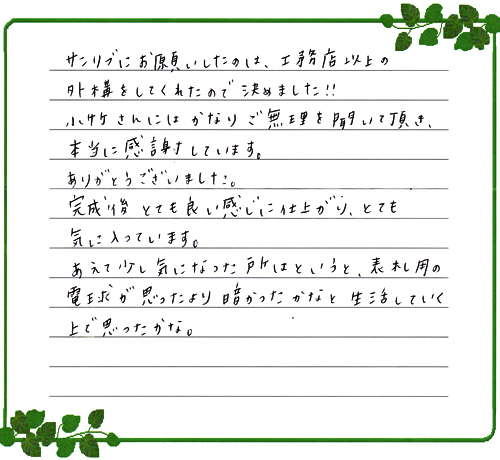 サンリブにお願いしたのは、工務店以上の
外構をしてくれたので決めました!!
小竹さんにはかなりご無理を聞いて頂き、
本当に感謝しています。
ありがとうございました。
完成後とても良い感じに仕上がり、とても
気に入っています。
あえて少し気になった所はというと、表札用の
電球が思ったより暗かったかなと生活していく
上で思ったかな。